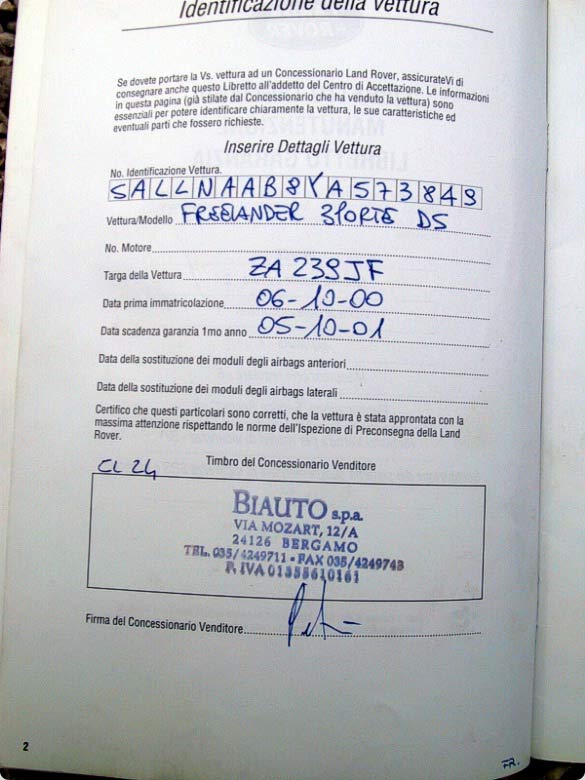 Identificazione della Vettura
Se dovete portare la Vs. vettura ad un Concessionario Land Rover, assicurateVi di
consegnare anche questo Libretto all'addetto del Centro di Accettazione. Le informazioni
in questa pagina (già stilate dal Concessionario che ha venduto la vettura) sono
essenziali per potere identificare chiaramente la vettura, le sue caratteristiche ed
eventuali parti che fossero richieste.
Inserire Dettagli Vettura
No. Identificazione Vettura.
SALLNAAB8YA573849
Vettura/Modello FREELANDER 3PORTE DS
No. Motore
Targa della Vettura ZA 239JF
Data prima immatricolazione 06-10-00
Data scadenza garanzia 1mo anno 05-10-01
Data della sostituzione dei moduli degli airbags anteriori
Data della sostituzione dei moduli degli airbags laterali
Certifico che questi particolari sono corretti, che la vettura è stata approntata con la
massima attenzione rispettando le norme dell'Ispezione di Preconsegna della Land
Rover.
CL 24 Timbro del Concessionario Venditore
BIAUTO s.p.a.
VIA MOZART, 12/A
24126 BERGAMO
TEL. 035/4249711 - FAX 035/4249743
P. IVA 01355610161
Firma del Concessionario Venditore
2
FR.